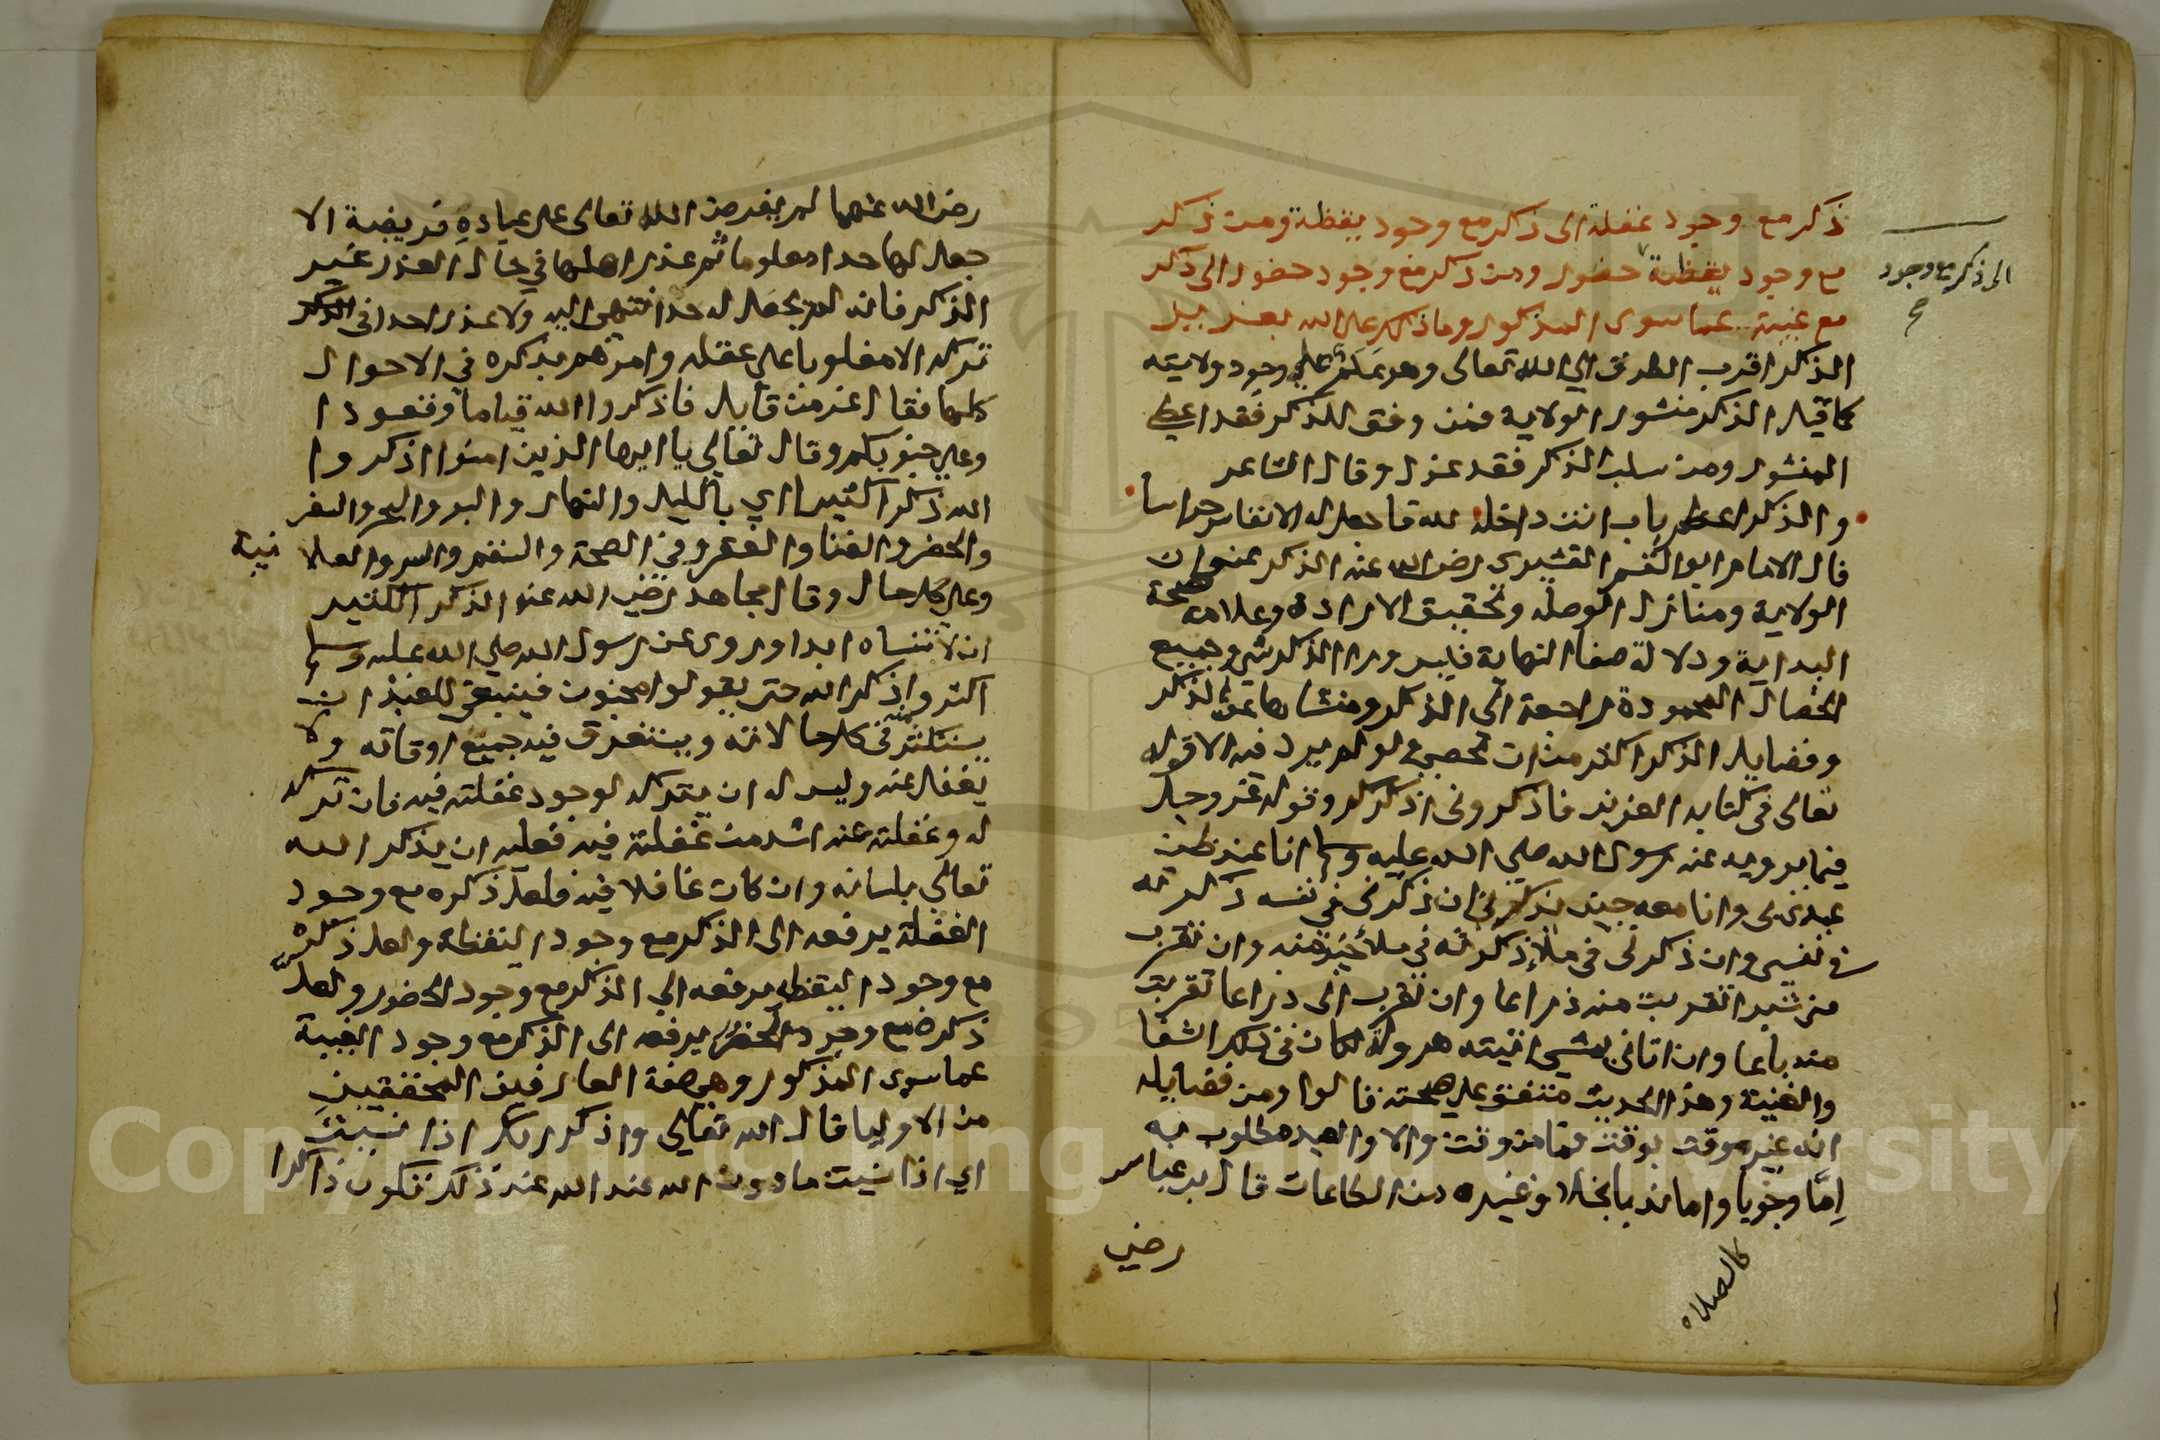 ذكر مع وجود غفلة الى ذكر مع وجود يقظة ومن ذكر
مع وجود يقظة حضور ومن ذكر مع وجود حضور الى ذكر
الى ذكر مع وجود
صح
مع غيبة عما سوى المذكور وما ذلك على الله بعزيز
الذكر اقرب الطرق الي الله تعالى وهو علم علي وجود ولايته
كما قيل الذكر منشور الولاية فمن وفق للذكر فقد اعطي
المنشور ومن سلب الذكر فقد عزل وقال الشاعر
والذكر اعظم باب انت داخله لله فاجعل له الانفاس حراسا
قال الامام ابو القسم القشيرى رضي الله عنه الذكر عنوان
الولاية ومنار الوصلة وتحقيق الارادة وعلامة صحة
البداية ودلالة صفا النهاية فليس ورا الذكر شي وجميع
الخصال المحمودة راجعة الى الذكر ومنشاها عن الذكر
وفضايل الذكر اكثر من ان تحصى لو لم يرد فيه الا قوله
تعالى فى كتابه العزيز فاذكرونى اذكركم وقوله عز وجل
فيما يرويه عنه رسول الله صلي الله عليه وسلم انا عند ظن
عبدى بى وانا معه حين يذكرنى ان ذكرنى فى نفسه ذكرته
فى نفسي وان ذكرنى فى ملإ ذكرته فى ملأ خير منه وان تقرب
منى شبرا تقربت منه ذراعا وان تقرب الى ذراعا تقربت
منه باعا وان اتانى يمشي اتيته هرولة لكان فى ذلك الشفا
والغنية وهذا الحديث متفق علي صحته قالوا ومن فضايله
انه غير موقت بوقت فما من وقت والا والعبد مطلوب به
اما وجوبا واما ندبا بخلاف غيره من الطاعات قال ابن عباس
كالصلاه
رضي
رضي الله عنهما لم يفرض الله تعالى على عباده فريضة الا
جعل لها حدا معلوما ثم عذر اهلها في حال العذر غير
الذكر فانه لم يجعل له حدا ينتهى اليه ولا عذر احدا فى الذكر
تركه الا مغلوبا على عقله وامرهم بذكره في الاحوال
كلها فقال عز من قايل فاذكروا الله قياما وقعودا
وعلى جنوبكم وقال تعالي يا ايها الذين امنوا اذكروا
الله ذكرا كثيرا اي بالليل والنهار والبر والبحر والسفر
والحضر والغنا والفقر وفي الصحة والسقم والسر والعلا
نية
وعلى كل حال وقال مجاهد رضي الله عنه الذكر الكثير
ان لا تنساه ابدا وروى عن رسول الله صلي الله عليه وسلم
اكثروا ذكر الله حتى يقولوا مجنون فينبغى للعبد ان
يستكثر منه فى كل حالاته ويستغرق فيه جميع اوقاته ولا
يغفل عنه وليس له ان يتركه لوجود غفلته فيه فان تركه
له وغفلته عنه اشد من غفلته فيه فعليه ان يذكر الله
تعالي بلسانه وان كان غافلا فيه فلعل ذكره مع وجود
الغفلة يرفعه الى الذكر مع وجود اليقظة ولعل ذكره
مع وجود اليقظة يرفعه الي الذكر مع وجود الحضور ولعل
ذكره مع وجود الحضور يرفعه الى الذكر مع وجود الغيبة
عما سوى المذكور وهي صفة العارفين المحققين
من الاوليا قال الله تعالي واذكر ربك اذا نسيت
اي اذا نسيت ما دون الله عند الله عند ذكر تكون ذاكرا
Copyright © King Saud University
1957